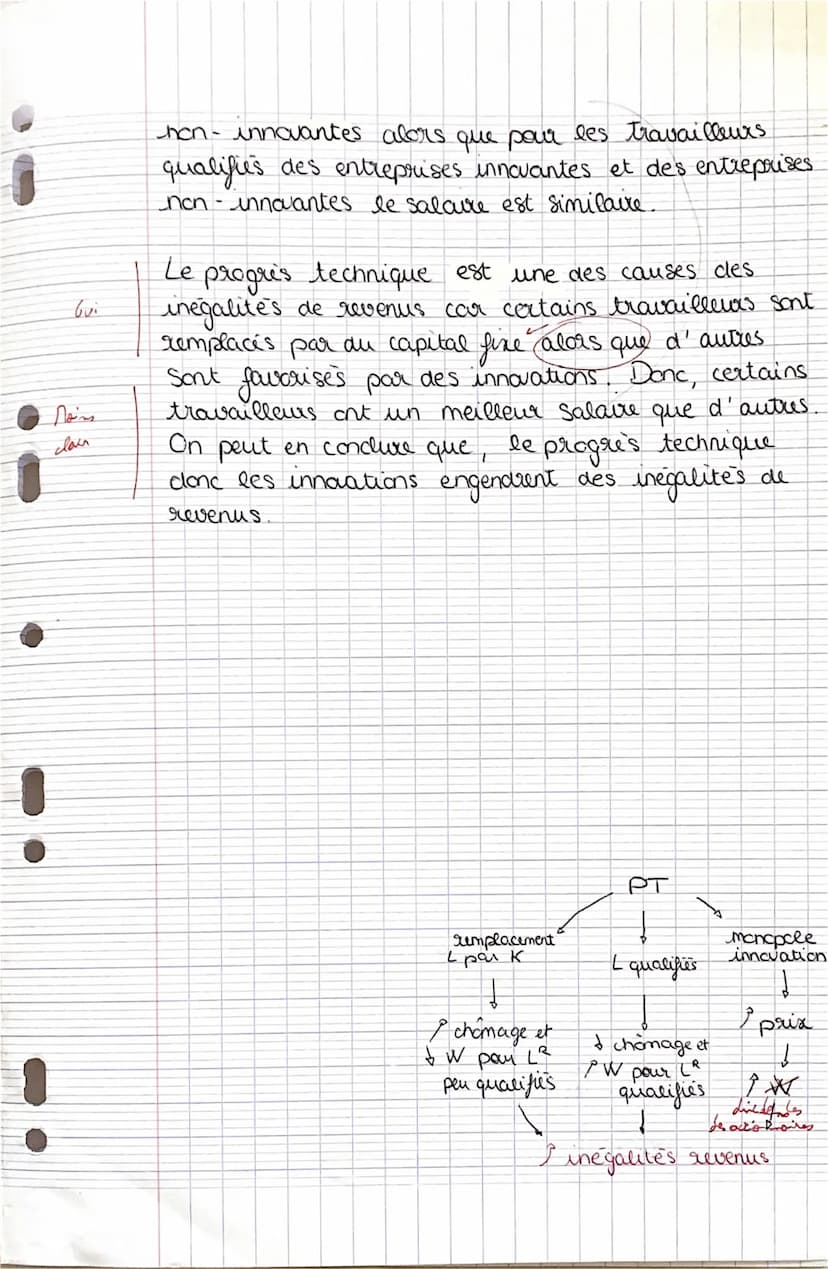 non-innovantes alors que pour les travailleurs
qualifiés des entreprises innovantes et des entreprises
non-innovantes le salaire est similaire.
Le progrès technique est une des causes des
Oui
inégalités de revenus car certains travailleurs sont
remplacés par du capital fixe alors que d'autres
sont favorisés par des innovations. Donc, certains
Moins
travailleurs ont un meilleur salaire que d'autres.
clair
On peut en conclure que, le progrès technique
donc les innovations engendrent des inégalités de
revenus.
PT
remplacement
L par K
L qualifiés
monopole
innovation
↗ chômage et
↓ W pour LR
peu qualifiés
↓ chômage et
↗ W pour LR
qualifiés
↗ prix
↗ W
dividendes
des actionnaires
↗ inégalités revenus